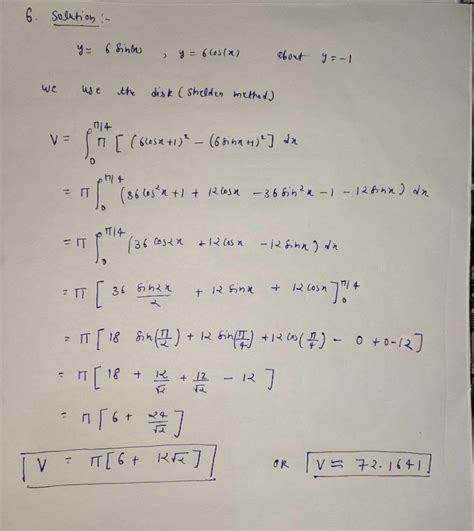 6. Solution :-
y = 6 Sin(x) , y = 6 cos(x) about y = -1
we use the disk (Shelden method)
V = ∫₀^(π/4) π [ (6cosx+1)² - (6sinx+1)² ] dx
= π ∫₀^(π/4) (36 cos²x + 1 + 12 cosx - 36 sin²x - 1 - 12 sinx) dx
= π ∫₀^(π/4) (36 cos2x + 12 cosx - 12 sinx) dx
= π [ 36 sin2x/2 + 12 sinx + 12 cosx ]₀^(π/4)
= π [ 18 sin(π/2) + 12 sin(π/4) + 12 cos(π/4) - 0 + 0 - 12 ]
= π [ 18 + 12/√2 + 12/√2 - 12 ]
= π [ 6 + 24/√2 ]
V = π [ 6 + 12√2 ] OR V = 72.1641